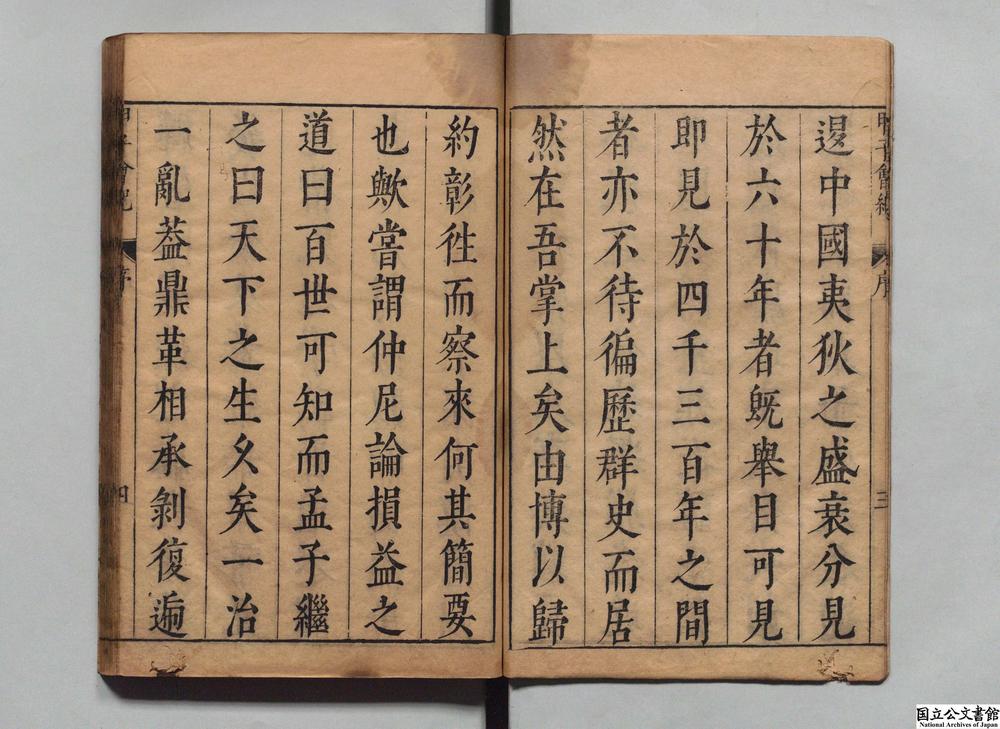 甲子會紀
序
三
邊中國夷狄之盛衰分見
於六十年者旣舉目可見
即見於四千三百年之間
者亦不待徧歷群史而居
然在吾掌上矣由博以歸
約彰徃而察來何其簡要
也歟嘗謂仲尼論損益之
道曰百世可知而孟子繼
之曰天下之生久矣一治
一亂葢鼎革相承剝復遍
甲子會紀
序
四
国立公文書館
National Archives of Japan